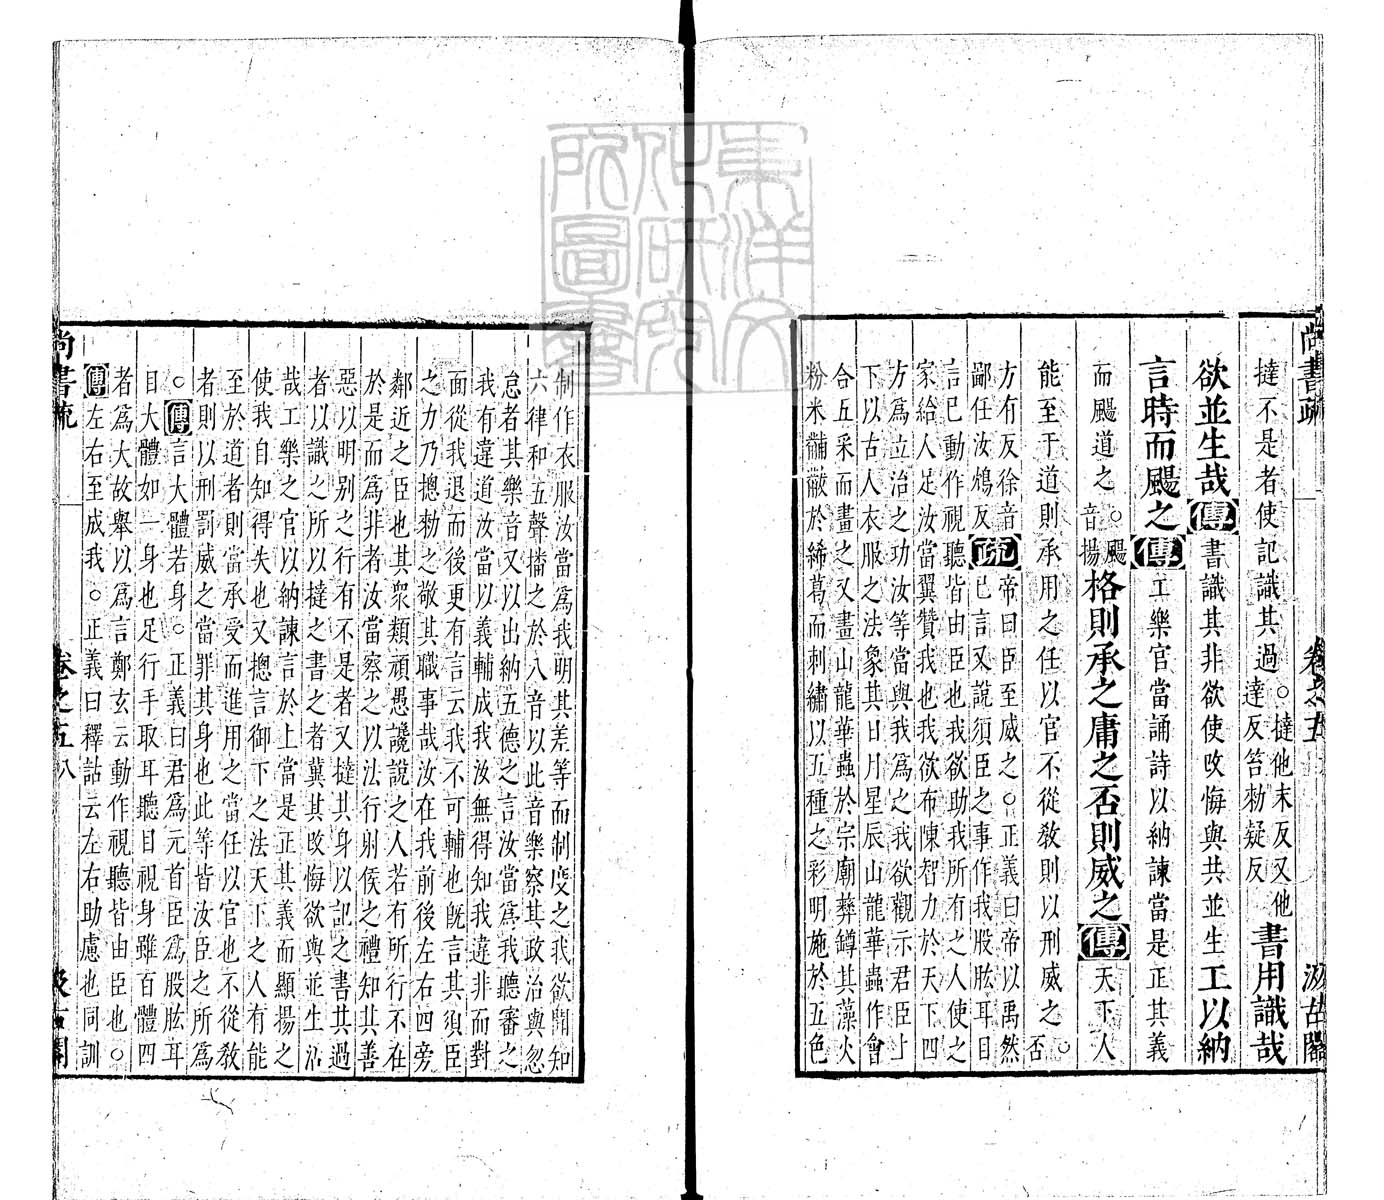 尚書疏 卷之五 汲古閣
撻不是者使記識其過。撻他末反又他達反笞勑疑反書用識哉
欲並生哉傳書識其非欲使改悔與共並生工以納
言時而颺之傳工樂官當誦詩以納諫當是正其義
而颺道之。颺音揚格則承之庸之否則威之傳天下人
能至于道則承用之任以官不從教則以刑威之。否
方有反徐音鄙任汝鴆反疏帝曰臣至威之。正義曰帝以禹然
己言又說須臣之事作我股肱耳目
言己動作視聽皆由臣也我欲助我所有之人使之
家給人足汝當翼贊我也我欲布陳智力於天下四
方為立治之功汝等當與我為之我欲觀示君臣上
下以古人衣服之法象其日月星辰山龍華蟲作會
合五采而畫之又畫山龍華蟲於宗廟彝罇其藻火
粉米黼黻於絺葛而刺繡以五種之彩明施於五色
制作衣服汝當為我明其差等而制度之我欲聞知
六律和五聲播之於八音以此音樂察其政治與忽
怠者其樂音又以出納五德之言汝當為我聽審之
我有違道汝當以義輔成我汝無得知我違非而對
面從我退而後更有言云我不可輔也既言其須臣
之力乃摠勑之敬其職事哉汝在我前後左右四旁
鄰近之臣也其衆類頑愚讒說之人若有所行不在
於是而為非者汝當察之以法行射侯之禮知其善
惡以明別之行有不是者又撻其身以記之書其過
者以識之所以撻之書之者冀其改悔欲與並生活
哉工樂之官以納諫言於上當是正其義而顯揚之
使我自知得失也又摠言御下之法天下之人有能
至於道者則當承受而進用之當任以官也不從教
者則以刑罰威之當罪其身也此等皆汝臣之所為
。傳言大體若身。正義曰君為元首臣為股肱耳
目大體如一身也足行手取耳聽目視身雖百體四
者為大故舉以為言鄭玄云動作視聽皆由臣也。
傳左右至成我。正義曰釋詁云左右助慮也同訓
尚書疏 卷之五 八 汲古閣
東洋文化研究所圖書